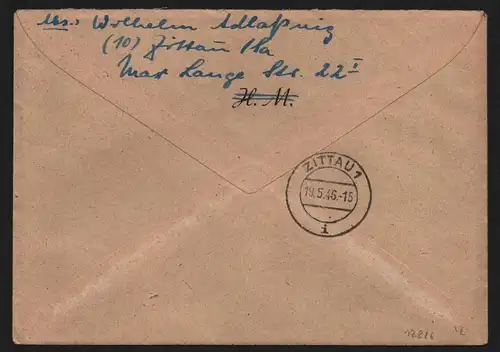 Abs.: Wilhelm Adlaßnig
(10) Zittau /Sa
Max Lange Str. 22 I
H. M.
ZITTAU 1
19.5.46.-15
i
12826